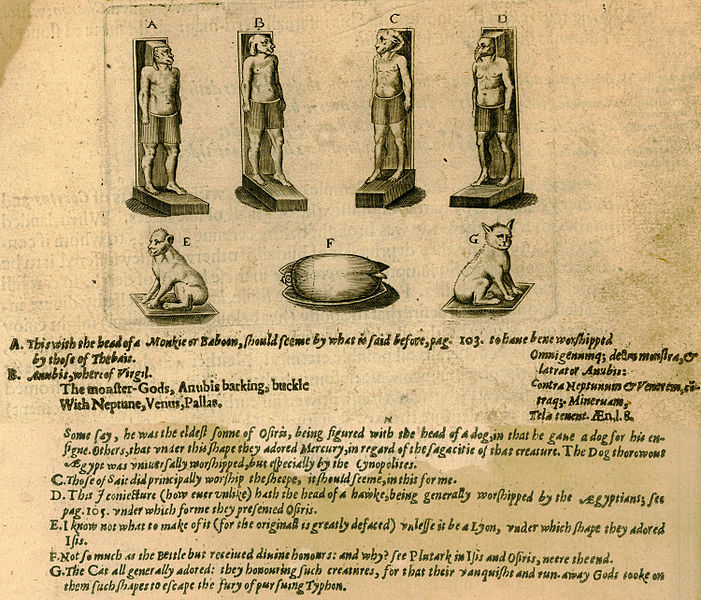 A B C D
E F G
A. This with the head of a Monkie or Baboon, should seeme by what is said before, pag. 103. to haue bene worshipped
by those of Thebais.
Omnigenumq; deum monstra, &
B. Anubis, wherof Virgil.
latrator Anubis:
The monster-Gods, Anubis barking, buckle
Contra Neptunum & Venerem, cõ-
With Neptune, Venus, Pallas.
traq; Mineruam,
Tela tenent. Æn, l. 8.
Some say, he was the eldest sonne of Osiris, being figured with the head of a dog, in that he gaue a dog for his en-
signe. Others, that vnder this shape they adored Mercury, in regard of the sagacitie of that creature. The Dog thorowout
Ægypt was vniuersally worshipped, but especially by the Cynopolites.
C. Those of Sait did principally worship the sheepe, it should seeme, in this forme.
D. This I coniecture (how euer vnlike) hath the head of a hawke, being generally worshipped by the Ægyptians; see
pag. 105. vnder which forme they presented Osiris.
E. I know not what to make of it (for the originall is greatly defaced) vnlesse it be a Lyon, vnder which shape they adored
Isis.
F. Not so much as the Beitle but receiued diuine honours: and why? see Plutark in Isis and Osiris, neere the end.
G. The Cat all generally adored: they honouring such creatures, for that their vanquisht and run-away Gods tooke on
them such shapes to escape the fury of pursuing Typhon.